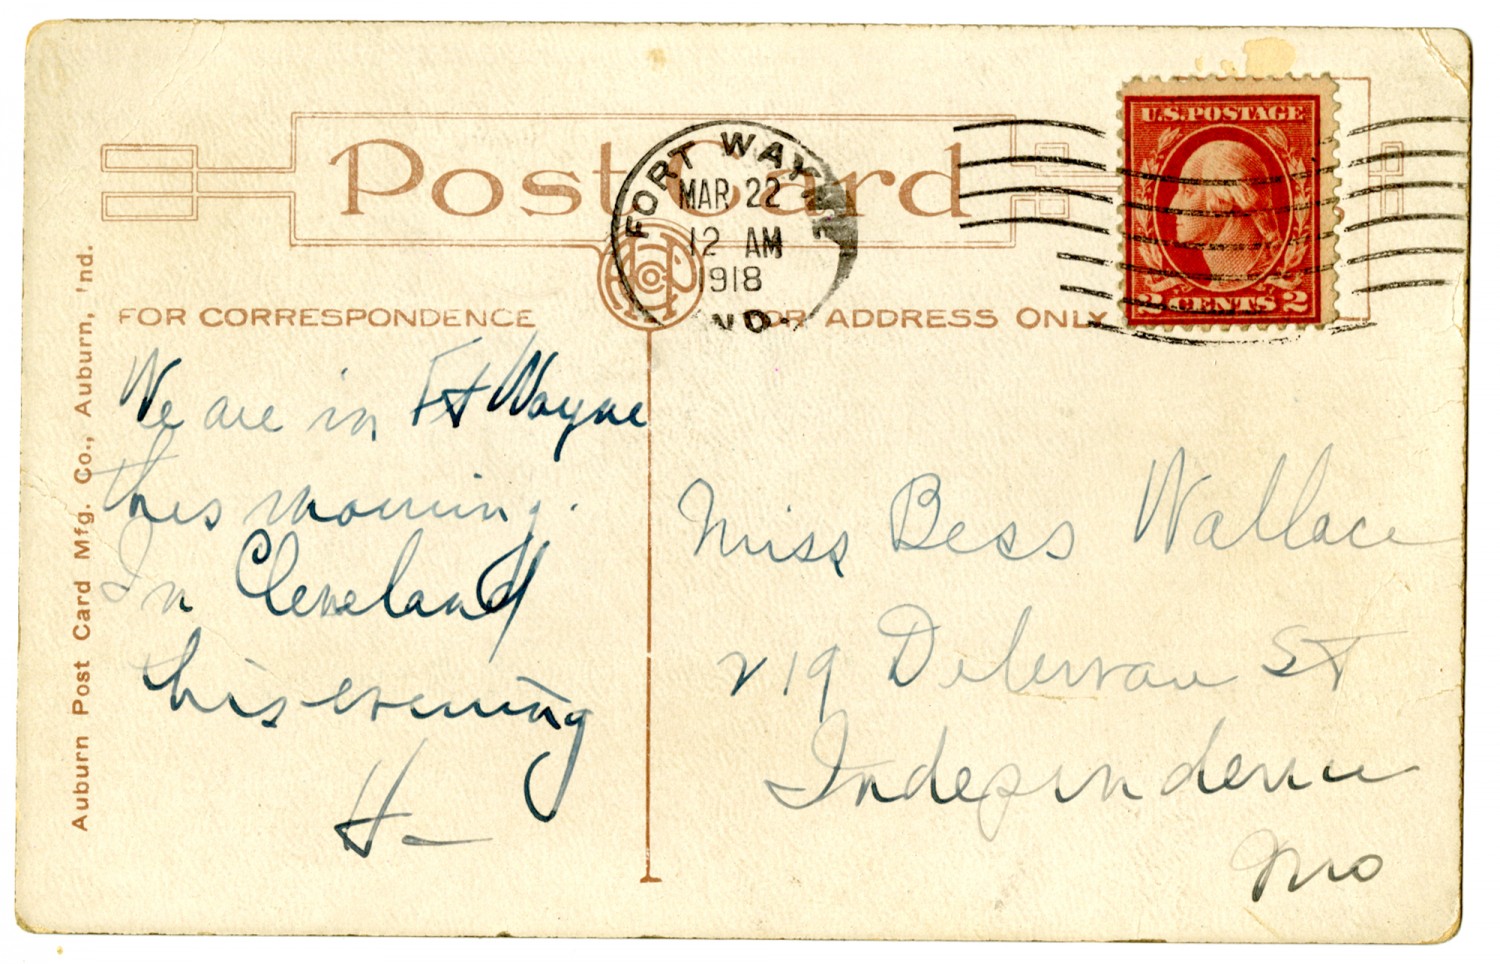 Post Card
FORT WAYNE
MAR 22
12 AM
1918
IND.
U.S. POSTAGE
2 CENTS 2
FOR CORRESPONDENCE
FOR ADDRESS ONLY
Auburn Post Card Mfg. Co., Auburn, Ind.
We are in Ft Wayne
this morning.
In Cleveland
this evening
H-
Miss Bess Wallace
219 Delewau St
Independence
Mo